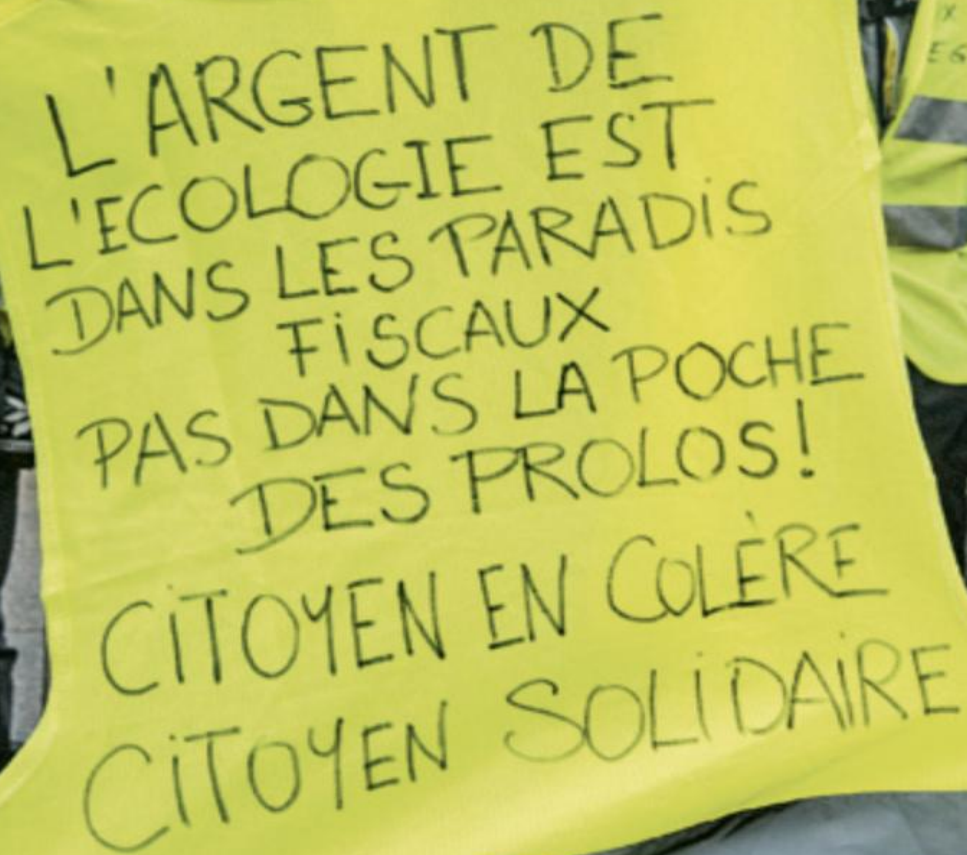 L'ARGENT DE
L'ECOLOGIE EST
DANS LES PARADIS
FISCAUX
PAS DANS LA POCHE
DES PROLOS!
CITOYEN EN COLÈRE
CITOYEN SOLIDAIRE